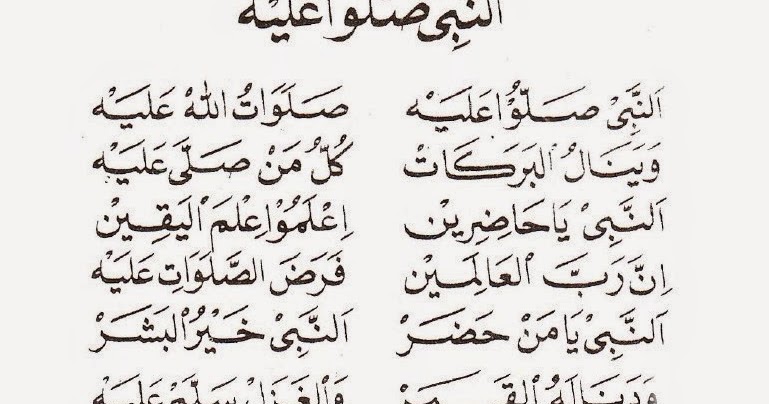 اَلنَّبِى صَلُّوا عَلَيْه
اَلنَّبِىْ صَلُّوْا عَلَيْه صَلَوَاتُ اللهْ عَلَيْه
وَيَنَالُ الْبَرَكَاتْ كُلُّ مَنْ صَلَّى عَلَيْه
اَلنَّبِىْ يَا حَاضِرِيْن اِعْلَمُوْا عِلْمَ الْيَقِيْن
اِنَّ رَبَّ الْعَالَمِيْن فَرَضَ الصَّلَوَاتِ عَلَيْه
اَلنَّبِىْ يَا مَنْ حَضَرْ اَلنَّبِىْ خَيْرُ الْبَشَرْ
لَهُ الْقَمَرْ وَالْغَزَلْ سَلَّمْ عَلَيْه